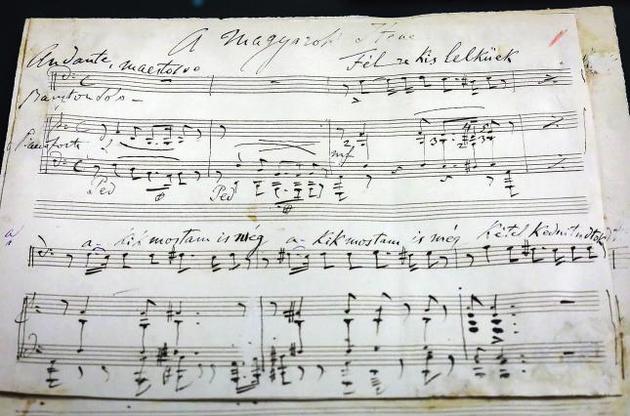 A magyarok Istene
Andante, maestoso
Fél-re kis lelküek
Pianoforte
mf
Ped Ped
a- kik mostan is még a- kik mostan is még Kétel kedni tudtok